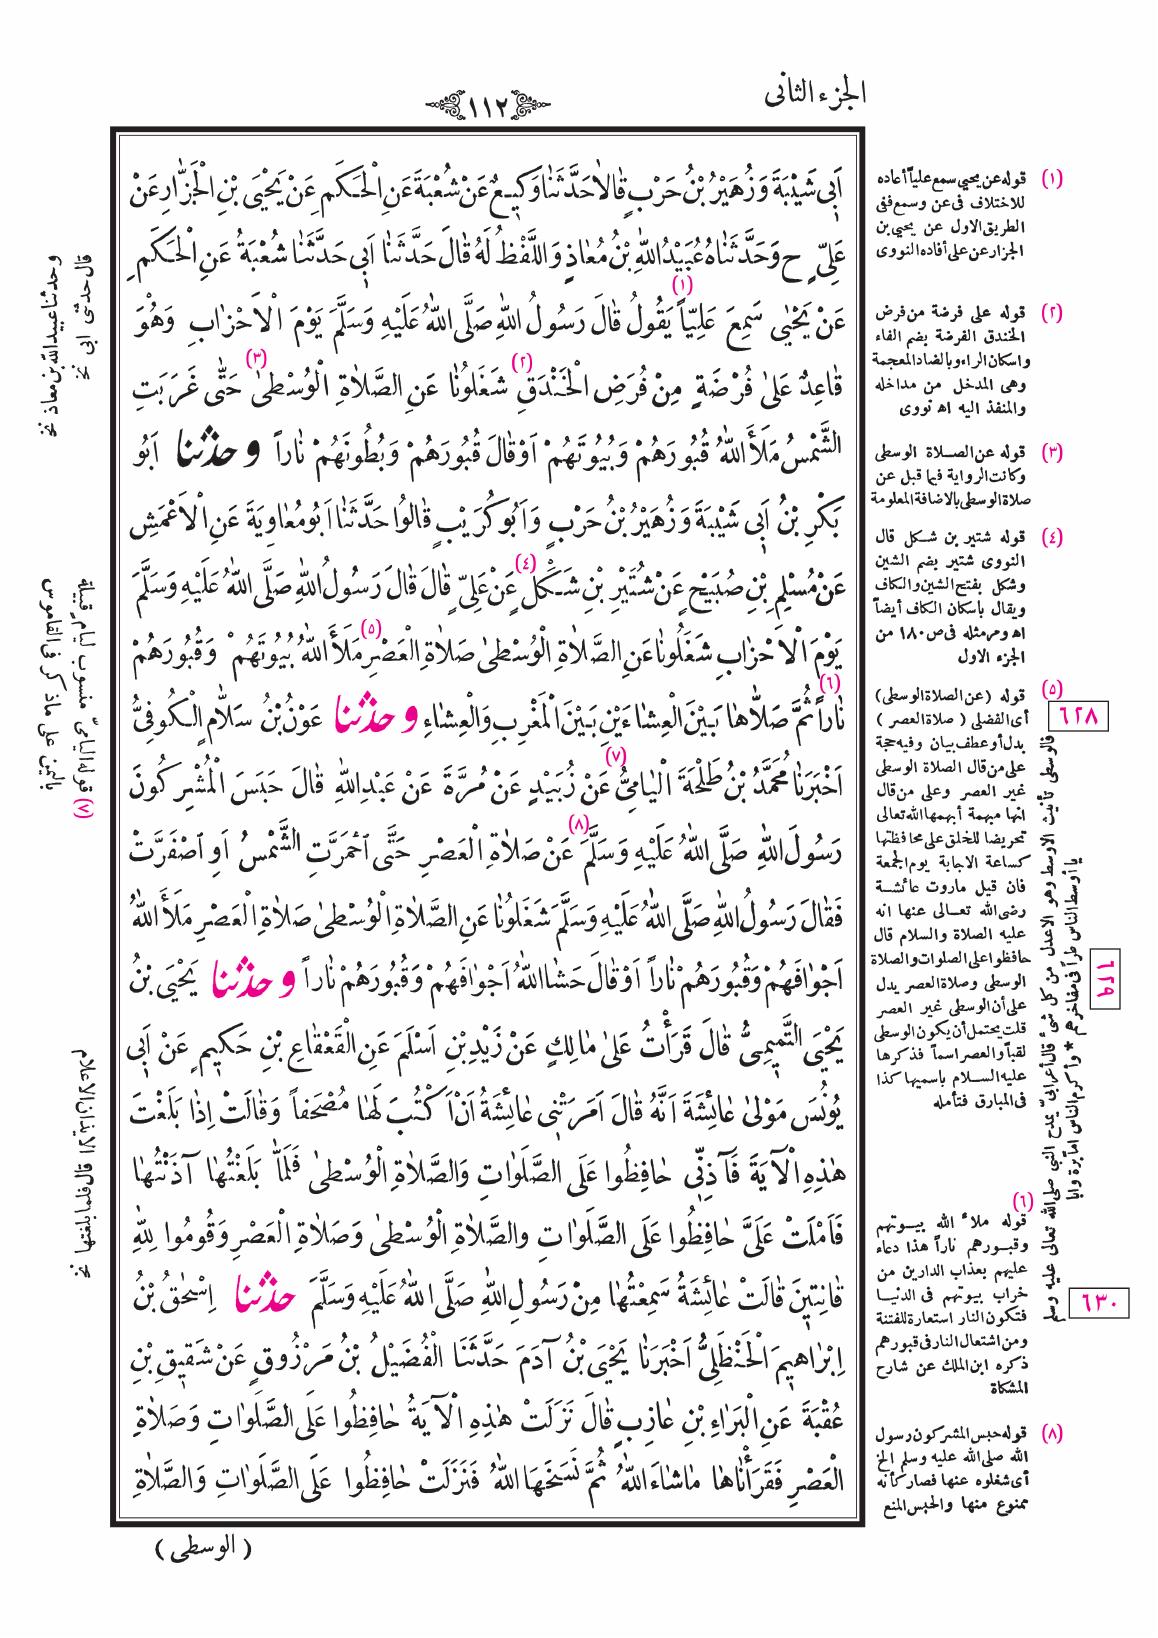 الجزء الثانى
١١٢
اَبِى شَيْبَةَ وَزُهَيْرُ بْنُ حَرْبٍ قَالَا حَدَّثَنَا وَكِيعٌ عَنْ شُعْبَةَ عَنِ الْحَكَمِ عَنْ يَحْيَى بْنِ الْجَزَّارِ عَنْ
عَلِىٍّ ح وَحَدَّثَنَاهُ عُبَيْدُ اللهِ بْنُ مُعَاذٍ وَاللَّفْظُ لَهُ قَالَ حَدَّثَنَا اَبِى حَدَّثَنَا شُعْبَةُ عَنِ الْحَكَمِ
عَنْ يَحْيٰى سَمِعَ عَلِيّاً (١) يَقُولُ قَالَ رَسُولُ اللهِ صَلَّى اللهُ عَلَيْهِ وَسَلَّمَ يَوْمَ الْاَحْزَابِ وَهُوَ
قَاعِدٌ عَلٰى فُرْضَةٍ مِنْ فُرَضِ الْخَنْدَقِ (٢) شَغَلُونَا عَنِ الصَّلَاةِ الْوُسْطٰى (٣) حَتّٰى غَرَبَتِ
الشَّمْسُ مَلَأَ اللهُ قُبُورَهُمْ وَبُيُوتَهُمْ اَوْ قَالَ قُبُورَهُمْ وَبُطُونَهُمْ نَاراً وحدثنا اَبُو
بَكْرِ بْنُ اَبِى شَيْبَةَ وَزُهَيْرُ بْنُ حَرْبٍ وَاَبُو كُرَيْبٍ قَالُوا حَدَّثَنَا اَبُو مُعَاوِيَةَ عَنِ الْاَعْمَشِ
عَنْ مُسْلِمِ بْنِ صُبَيْحٍ عَنْ شُتَيْرِ بْنِ شَكَلٍ (٤) عَنْ عَلِىٍّ قَالَ قَالَ رَسُولُ اللهِ صَلَّى اللهُ عَلَيْهِ وَسَلَّمَ
يَوْمَ الْاَحْزَابِ شَغَلُونَا عَنِ الصَّلَاةِ الْوُسْطٰى صَلَاةِ الْعَصْرِ (٥) مَلَأَ اللهُ بُيُوتَهُمْ وَقُبُورَهُمْ
نَاراً (٦) ثُمَّ صَلَّاهَا بَيْنَ الْعِشَاءَيْنِ بَيْنَ الْمَغْرِبِ وَالْعِشَاءِ وحدثنا عَوْنُ بْنُ سَلَّامٍ الْكُوفِىُّ
اَخْبَرَنَا مُحَمَّدُ بْنُ طَلْحَةَ الْيَامِىُّ (٧) عَنْ زُبَيْدٍ عَنْ مُرَّةَ عَنْ عَبْدِ اللهِ قَالَ حَبَسَ الْمُشْرِكُونَ
رَسُولَ اللهِ صَلَّى اللهُ عَلَيْهِ وَسَلَّمَ (٨) عَنْ صَلَاةِ الْعَصْرِ حَتَّى احْمَرَّتِ الشَّمْسُ اَوِ اصْفَرَّتْ
فَقَالَ رَسُولُ اللهِ صَلَّى اللهُ عَلَيْهِ وَسَلَّمَ شَغَلُونَا عَنِ الصَّلَاةِ الْوُسْطٰى صَلَاةِ الْعَصْرِ مَلَأَ اللهُ
اَجْوَافَهُمْ وَقُبُورَهُمْ نَاراً اَوْ قَالَ حَشَا اللهُ اَجْوَافَهُمْ وَقُبُورَهُمْ نَاراً وحدثنا يَحْيَى بْنُ
يَحْيَى التَّمِيمِىُّ قَالَ قَرَأْتُ عَلٰى مَالِكٍ عَنْ زَيْدِ بْنِ اَسْلَمَ عَنِ الْقَعْقَاعِ بْنِ حَكِيمٍ عَنْ اَبِى
يُونُسَ مَوْلٰى عَائِشَةَ اَنَّهُ قَالَ اَمَرَتْنِى عَائِشَةُ اَنْ اَكْتُبَ لَهَا مُصْحَفاً وَقَالَتْ اِذَا بَلَغْتَ
هٰذِهِ الْآيَةَ فَآذِنِّى حَافِظُوا عَلَى الصَّلَوَاتِ وَالصَّلَاةِ الْوُسْطٰى فَلَمَّا بَلَغْتُهَا آذَنْتُهَا
فَاَمْلَتْ عَلَىَّ حَافِظُوا عَلَى الصَّلَوَاتِ وَالصَّلَاةِ الْوُسْطٰى وَصَلَاةِ الْعَصْرِ وَقُومُوا لِلّٰهِ
قَانِتِينَ قَالَتْ عَائِشَةُ سَمِعْتُهَا مِنْ رَسُولِ اللهِ صَلَّى اللهُ عَلَيْهِ وَسَلَّمَ حدثنا اِسْحٰقُ بْنُ
اِبْرَاهِيمَ الْحَنْظَلِىُّ اَخْبَرَنَا يَحْيَى بْنُ آدَمَ حَدَّثَنَا الْفُضَيْلُ بْنُ مَرْزُوقٍ عَنْ شَقِيقِ بْنِ
عُقْبَةَ عَنِ الْبَرَاءِ بْنِ عَازِبٍ قَالَ نَزَلَتْ هٰذِهِ الْآيَةُ حَافِظُوا عَلَى الصَّلَوَاتِ وَصَلَاةِ
الْعَصْرِ فَقَرَأْنَاهَا مَا شَاءَ اللهُ ثُمَّ نَسَخَهَا اللهُ فَنَزَلَتْ حَافِظُوا عَلَى الصَّلَوَاتِ وَالصَّلَاةِ
( الوسطى )
(١) قوله عن يحيى سمع علياً أعاده
للاختلاف فى عن وسمع ففى
الطريق الاول عن يحيى بن
الجزار عن على أفاده النووى
(٢) قوله على فرضة من فرض
الخندق الفرضة بضم الفاء
واسكان الراء وبالضاد المعجمة
وهى المدخل من مداخله
والمنفذ اليه اه نووى
(٣) قوله عن الصلاة الوسطى
وكانت الرواية فيما قبل عن
صلاة الوسطى بالاضافة المعلومة
(٤) قوله شتير بن شكل قال
النووى شتير بضم الشين
وشكل بفتح الشين والكاف
ويقال باسكان الكاف أيضاً
اه ومر مثله فى ص ١٨٠ من
الجزء الاول
(٥) قوله (عن الصلاة الوسطى)
أى الفضلى ( صلاة العصر )
بدل أو عطف بيان وفيه حجة
على من قال الصلاة الوسطى
غير العصر وعلى من قال
انها مبهمة أبهمها الله تعالى
تحريضا للخلق على محافظتها
كساعة الاجابة يوم الجمعة
فان قيل ماروت عائشة
رضى الله تعالى عنها انه
عليه الصلاة والسلام قال
حافظوا على الصلوات والصلاة
الوسطى وصلاة العصر يدل
على أن الوسطى غير العصر
قلت يحتمل أن يكون الوسطى
لقباً والعصر اسماً فذكرها
عليه السلام باسميها كذا
فى المبارق فتأمله
(٦) قوله ملاء الله بيوتهم
وقبورهم ناراً هذا دعاء
عليهم بعذاب الدارين من
خراب بيوتهم فى الدنيا
فتكون النار استعارة للفتنة
ومن اشتعال النار فى قبورهم
ذكره ابن الملك عن شارح
المشكاة
(٨) قوله حبس المشركون رسول
الله صلى الله عليه وسلم الخ
أى شغلوه عنها فصار كأنه
ممنوع منها والحبس المنع
٦٢٨
٦٢٩
٦٣٠
فالوسطى تأنيث الاوسط وهو الاعدل من كل شىء قال أعرابى يمدح النبى صلى الله تعالى عليه وسلم
يا أوسط الناس طراً فى مفاخرهم * وأكرم الناس اماً برة وابا
وحدثنا عبيد الله بن معاذ نخ
قال حدثنى ابى نخ
(٧) قوله اليامىّ منسوب ليام قبيلة
باليمن على ماذكر فى القاموس
الايذان الاعلام
قال فلما بلغتها نخ